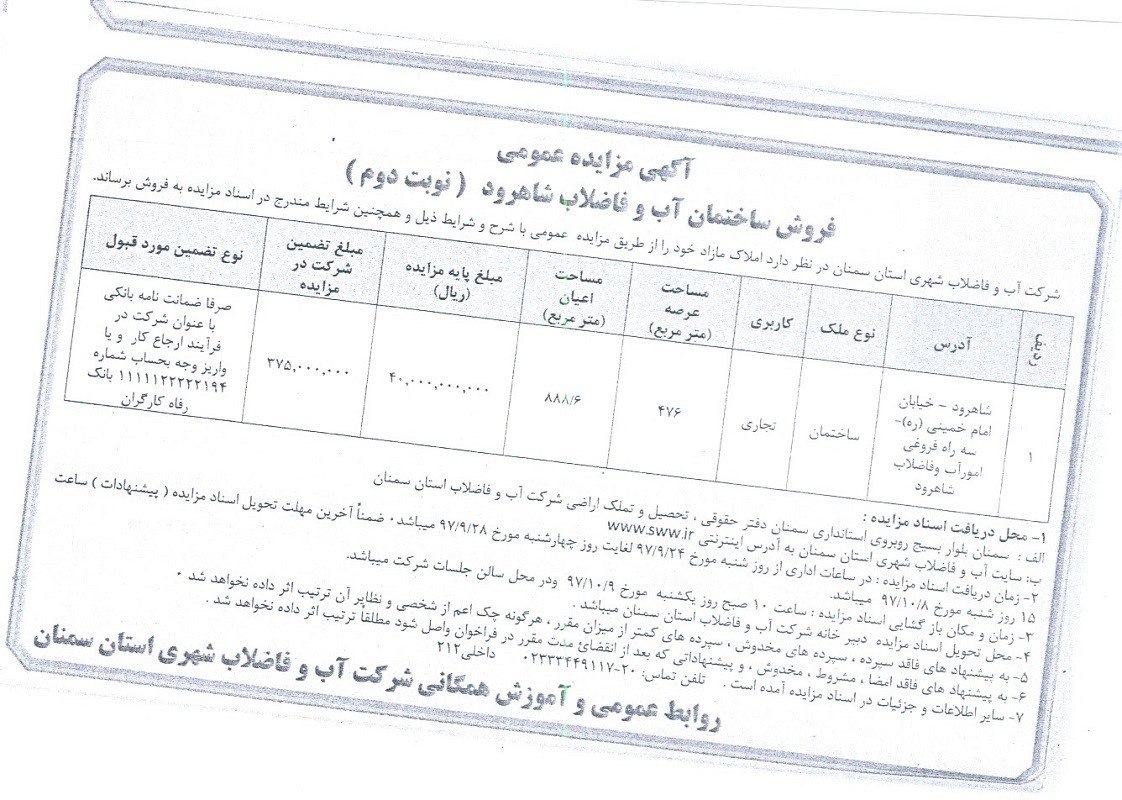 آگهی مزایده عمومی
فروش ساختمان آب و فاضلاب شاهرود ( نوبت دوم )
شرکت آب و فاضلاب شهری استان سمنان در نظر دارد املاک مازاد خود را از طریق مزایده عمومی با شرح و شرایط ذیل و همچنین شرایط مندرج در اسناد مزایده به فروش برساند.
ردیف
آدرس
نوع ملک
کاربری
مساحت
عرصه
(متر مربع)
مساحت
اعیان
(متر مربع)
مبلغ پایه مزایده
(ریال)
مبلغ تضمین
شرکت در
مزایده
نوع تضمین مورد قبول
۱
شاهرود – خیابان
امام خمینی (ره)–
سه راه فروغی
امورآب وفاضلاب
شاهرود
ساختمان
تجاری
۴۷۶
۸۸۸/۶
۴۰,۰۰۰,۰۰۰,۰۰۰
۳۷۵,۰۰۰,۰۰۰
صرفا ضمانت نامه بانکی
با عنوان شرکت در
فرآیند ارجاع کار و یا
واریز وجه بحساب شماره
۱۱۱۱۱۲۲۲۲۲۱۹۴ بانک
رفاه کارگران
۱- محل دریافت اسناد مزایده :
الف : سمنان بلوار بسیج روبروی استانداری سمنان دفتر حقوقی ، تحصیل و تملک اراضی شرکت آب و فاضلاب استان سمنان
ب: سایت آب و فاضلاب شهری استان سمنان به آدرس اینترنتی www.sww.ir
۲- زمان دریافت اسناد مزایده : در ساعات اداری از روز شنبه مورخ ۹۷/۹/۲۴ لغایت روز چهارشنبه مورخ ۹۷/۹/۲۸ میباشد۰ ضمناً آخرین مهلت تحویل اسناد مزایده ( پیشنهادات ) ساعت
۱۵ روز شنبه مورخ ۹۷/۱۰/۸ میباشد.
۳- زمان و مکان باز گشایی اسناد مزایده : ساعت ۱۰ صبح روز یکشنبه مورخ ۹۷/۱۰/۹ ودر محل سالن جلسات شرکت میباشد.
۴- محل تحویل اسناد مزایده دبیر خانه شرکت آب و فاضلاب استان سمنان میباشد .
۵- به پیشنهاد های فاقد سپرده ، سپرده های مخدوش ، سپرده های کمتر از میزان مقرر ، هرگونه چک اعم از شخصی و نظایر آن ترتیب اثر داده نخواهد شد ۰
۶- به پیشنهاد های فاقد امضا ، مشروط ، مخدوش ، و پیشنهاداتی که بعد از انقضائ مدت مقرر در فراخوان واصل شود مطلقا ترتیب اثر داده نخواهد شد .
۷- سایر اطلاعات و جزئیات در اسناد مزایده آمده است . تلفن تماس: ۲۰-۰۲۳۳۳۴۴۹۱۱۷ داخلی۲۱۲
روابط عمومی و آموزش همگانی شرکت آب و فاضلاب شهری استان سمنان